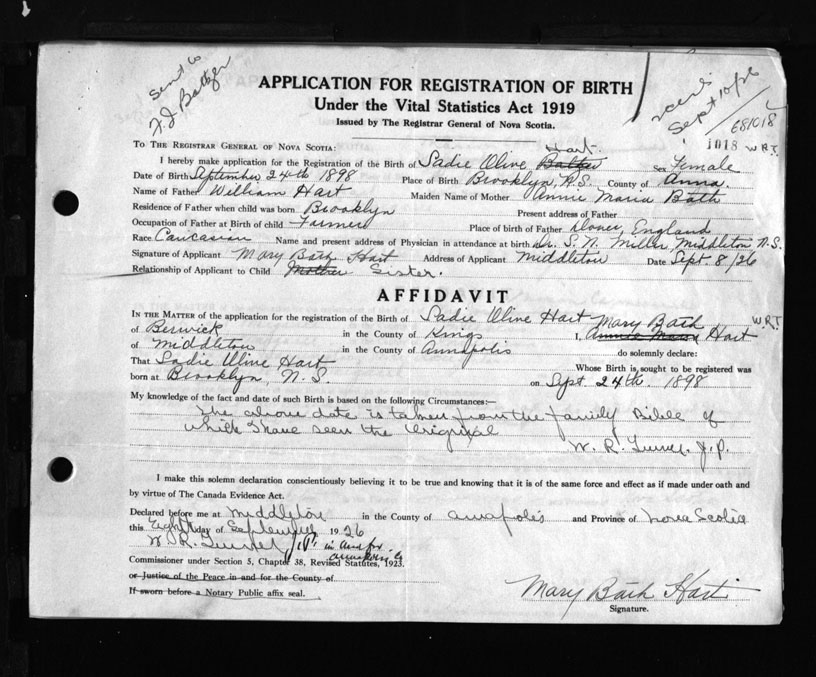 Sent to
F.J. Baltzer
APPLICATION FOR REGISTRATION OF BIRTH
Under the Vital Statistics Act 1919
Issued by The Registrar General of Nova Scotia.
Sept 10/26
681018
1018 W.R.T.
TO THE REGISTRAR GENERAL OF NOVA SCOTIA:
Hart
I hereby make application for the Registration of the Birth of Sadie Olive sex Female
Date of Birth September 24th 1898 Place of Birth Brooklyn, N.S. County of Anna.
Name of Father William Hart Maiden Name of Mother Annie Maria Bath
Residence of Father when child was born Brooklyn Present address of Father
Occupation of Father at Birth of child Farmer Place of birth of Father Dover, England
Race Caucasian Name and present address of Physician in attendance at birth Dr. S. N. Miller, Middleton N.S.
Signature of Applicant Mary Bath Hart Address of Applicant Middleton Date Sept. 8/26
Relationship of Applicant to Child Mother Sister.
AFFIDAVIT
IN THE MATTER of the application for the registration of the Birth of Sadie Olive Hart Mary Bath W.R.T.
of Berwick in the County of Kings I, Hart
of Middleton in the County of Annapolis do solemnly declare:
That Sadie Olive Hart Whose Birth is sought to be registered was
born at Brooklyn, N.S. on Sept. 24th. 1898
My knowledge of the fact and date of such Birth is based on the following Circumstances:—
The above date is taken from the family Bible of
which I have seen the Original
W. R. Turner J.P.
I make this solemn declaration conscientiously believing it to be true and knowing that it is of the same force and effect as if made under oath and
by virtue of The Canada Evidence Act.
Declared before me at Middleton in the County of Annapolis and Province of Nova Scotia
this Eighth day of September 1926
W. R. Turner J.P. in and for
Annapolis Co
Commissioner under Section 5, Chapter 38, Revised Statutes, 1923.
or Justice of the Peace in and for the County of
If sworn before a Notary Public affix seal.
Mary Bath Hart
Signature.